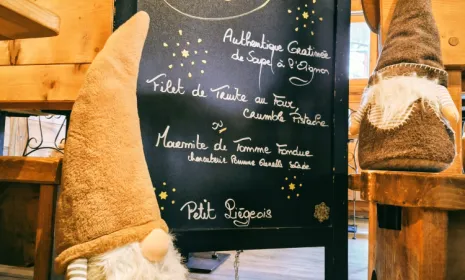 Authentique Gratinée
de Soupe à l'Oignon
Filet de Truite au Four,
crumble Pistache
ou
Marmite de Tomme Fondue
charcuterie Pomme Grenaille Salade
Petit Liégeois